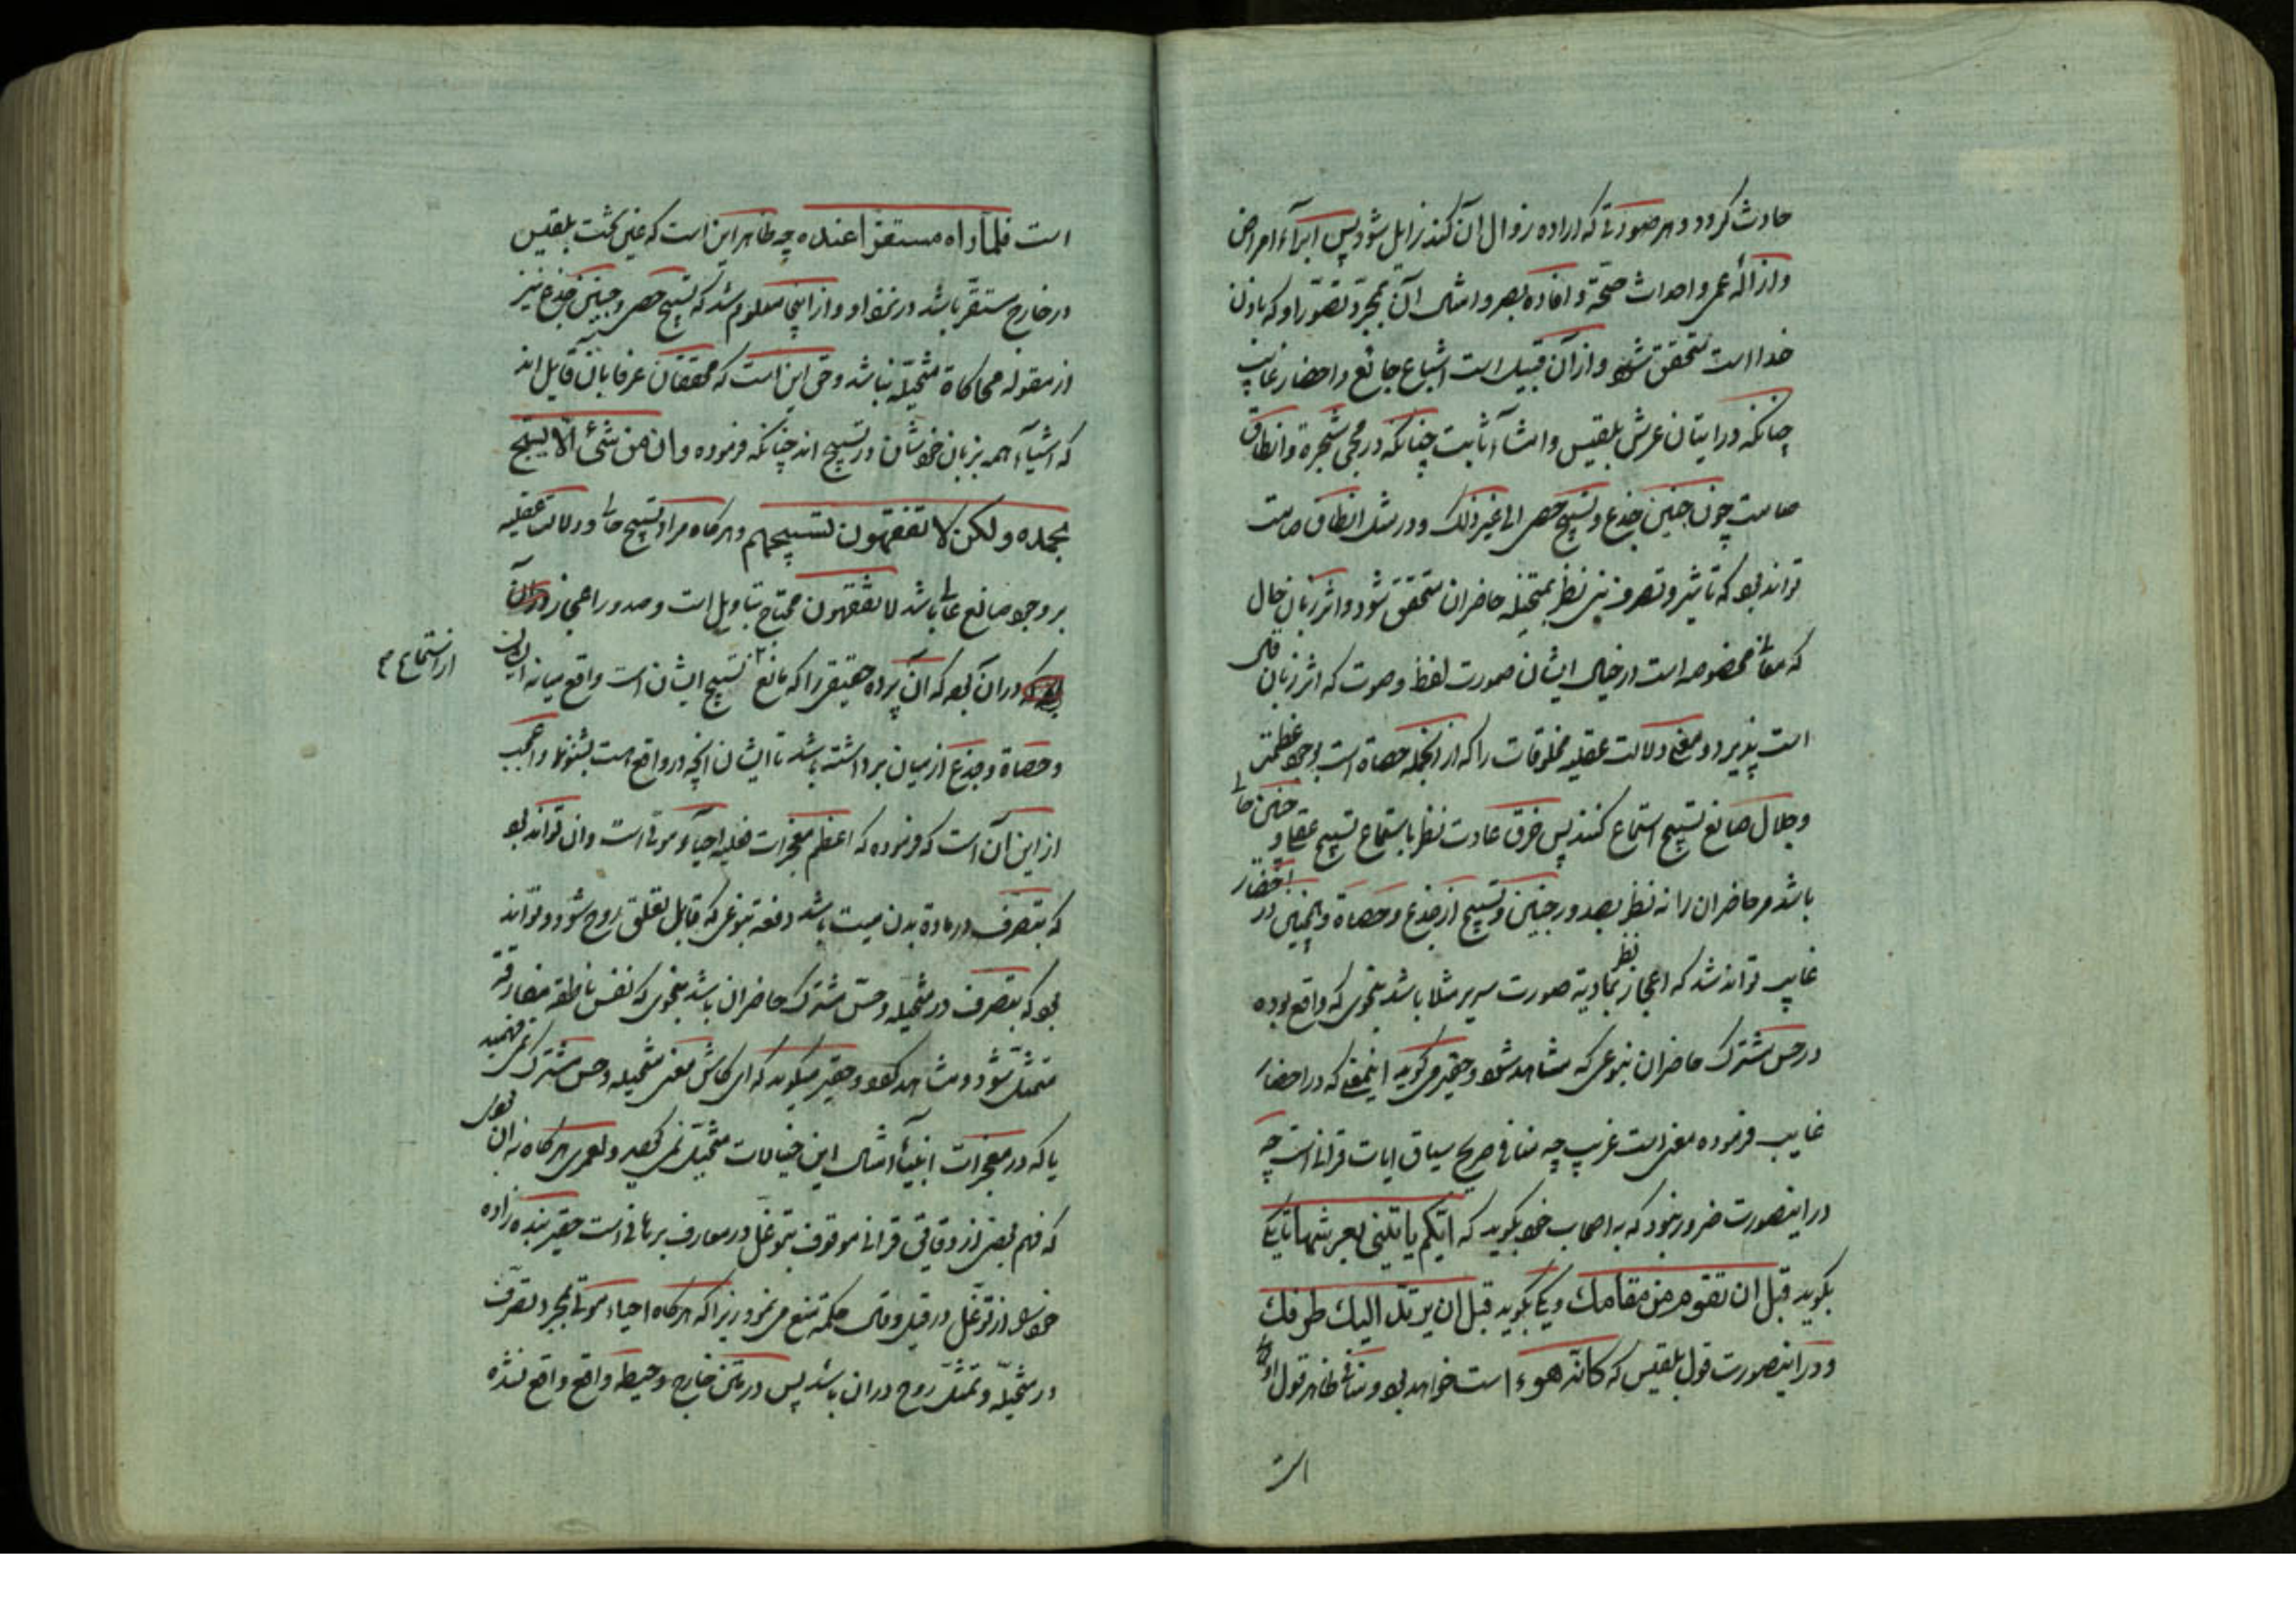 حادث گردد و هر صورتی که اراده زوال آن کند زایل شود پس ابراء امراض
و ازاله عمی و احداث صحة و افاده بصر و امثال آن بمجرد تصور او که باذن
خدا است متحقق شود و از آن قبیل است اشباع جائع و احضار غایب
چنانکه در اتیان عرش بلقیس و انشاء ثابت چنانکه در مجی شجرة و انطاق
صامت چون حنین جذع و تسبیح حصی الی غیر ذلک و در مثل انطاق صامت
تواند بود که تاثیر و تصرف نبی نظر بمتخیله حاضران متحقق شود و اثر زبان حال
که معانی مخصوصه است در خیال ایشان صورت لفظ و صوت که اثر زبان قالی
است پذیرد و معنی دلالت عقلیه مخلوقات را که از انجمله حصاة است بوجود عظمت
و جلال صانع تسبیح استماع کنند پس خرق عادت نظر باستماع تسبیح عقلی و حنین حالی
باشد مر حاضران را نه نظر بصدور حنین و تسبیح از جذع و حصاة و همچنین در احضار
غایب تواند شد که اعجاز نظر بتمادیه صورت سریر مثلا باشد بنحوی که واقع بوده
در حس مشترک حاضران بنوعی که مشاهد شود و حقیر می گوید اینمعنی که در احضار
غایب فرموده معنی است غریب چه منافی صریح سیاق ایات قرانی است چه
در اینصورت ضرور نبود که به اصحاب خود بگوید که ایکم یاتینی بعرشها تا یکی
بگوید قبل ان تقوم من مقامک و یکی بگوید قبل ان یرتد الیک طرفک
و در اینصورت قول بلقیس که کانه هو، است خواهد بود و منافی ظاهر قول
است
است فلما راه مستقرا عنده چه ظاهر این است که عین تخت بلقیس
در خارج مستقر باشد در نزد او و از اینجا معلوم شد که تسبیح حصی و حنین جذع نیز
از مقوله محاکاة متخیله نباشد و حق این است که محققان عرفا بان قایل اند
که اشیاء همه بزبان خودشان در تسبیح اند چنانکه فرموده وان من شیء الا یسبح
بحمده ولکن لا تفقهون تسبیحهم و هرگاه مراد تسبیح حالی و دلالت عقلیه
بر وجود صانع عالی باشد لا تفقهون محتاج بتاویل است و صدور اعجاز
در آن بود که آن پرده حقیقی را که مانع تسبیح ایشان است واقع میانه ایشان
از استماع
و حصاة و جذع از میان برداشته باشد تا ایشان انچه در واقع است بشنوند و اعجب
از این آن است که فرموده که اعظم معجزات فعلیه احیاء موتی است و ان تواند بود
که بتصرف در ماده بدن میت باشد دفعة بنوعی که قابل تعلق روح شود و تواند
بود که بتصرف در متخیله و حس مشترک حاضران باشد بنحوی که نفس ناطقه مفارقه
متمثل شود و مشاهد گردد و حقیر میگوید که ای کاش معنی متخیله و حس مشترک نمی فهمید
یا که در معجزات انبیاء امثال این خیالات متخیل نمی گردید و لعمری هرگاه نه ان بود
که فهم بعضی از دقایق قرانی موقوف بتوغل در معارف برهانی است حقیر بنده زاده
خود را از توغل در قیل و قال حکمة منع می نمود زیرا که هرگاه احیاء موتی بمجرد تصرف
در متخیله و تمثل روح در ان باشد پس در متن خارج و حیطه واقع واقع نشده